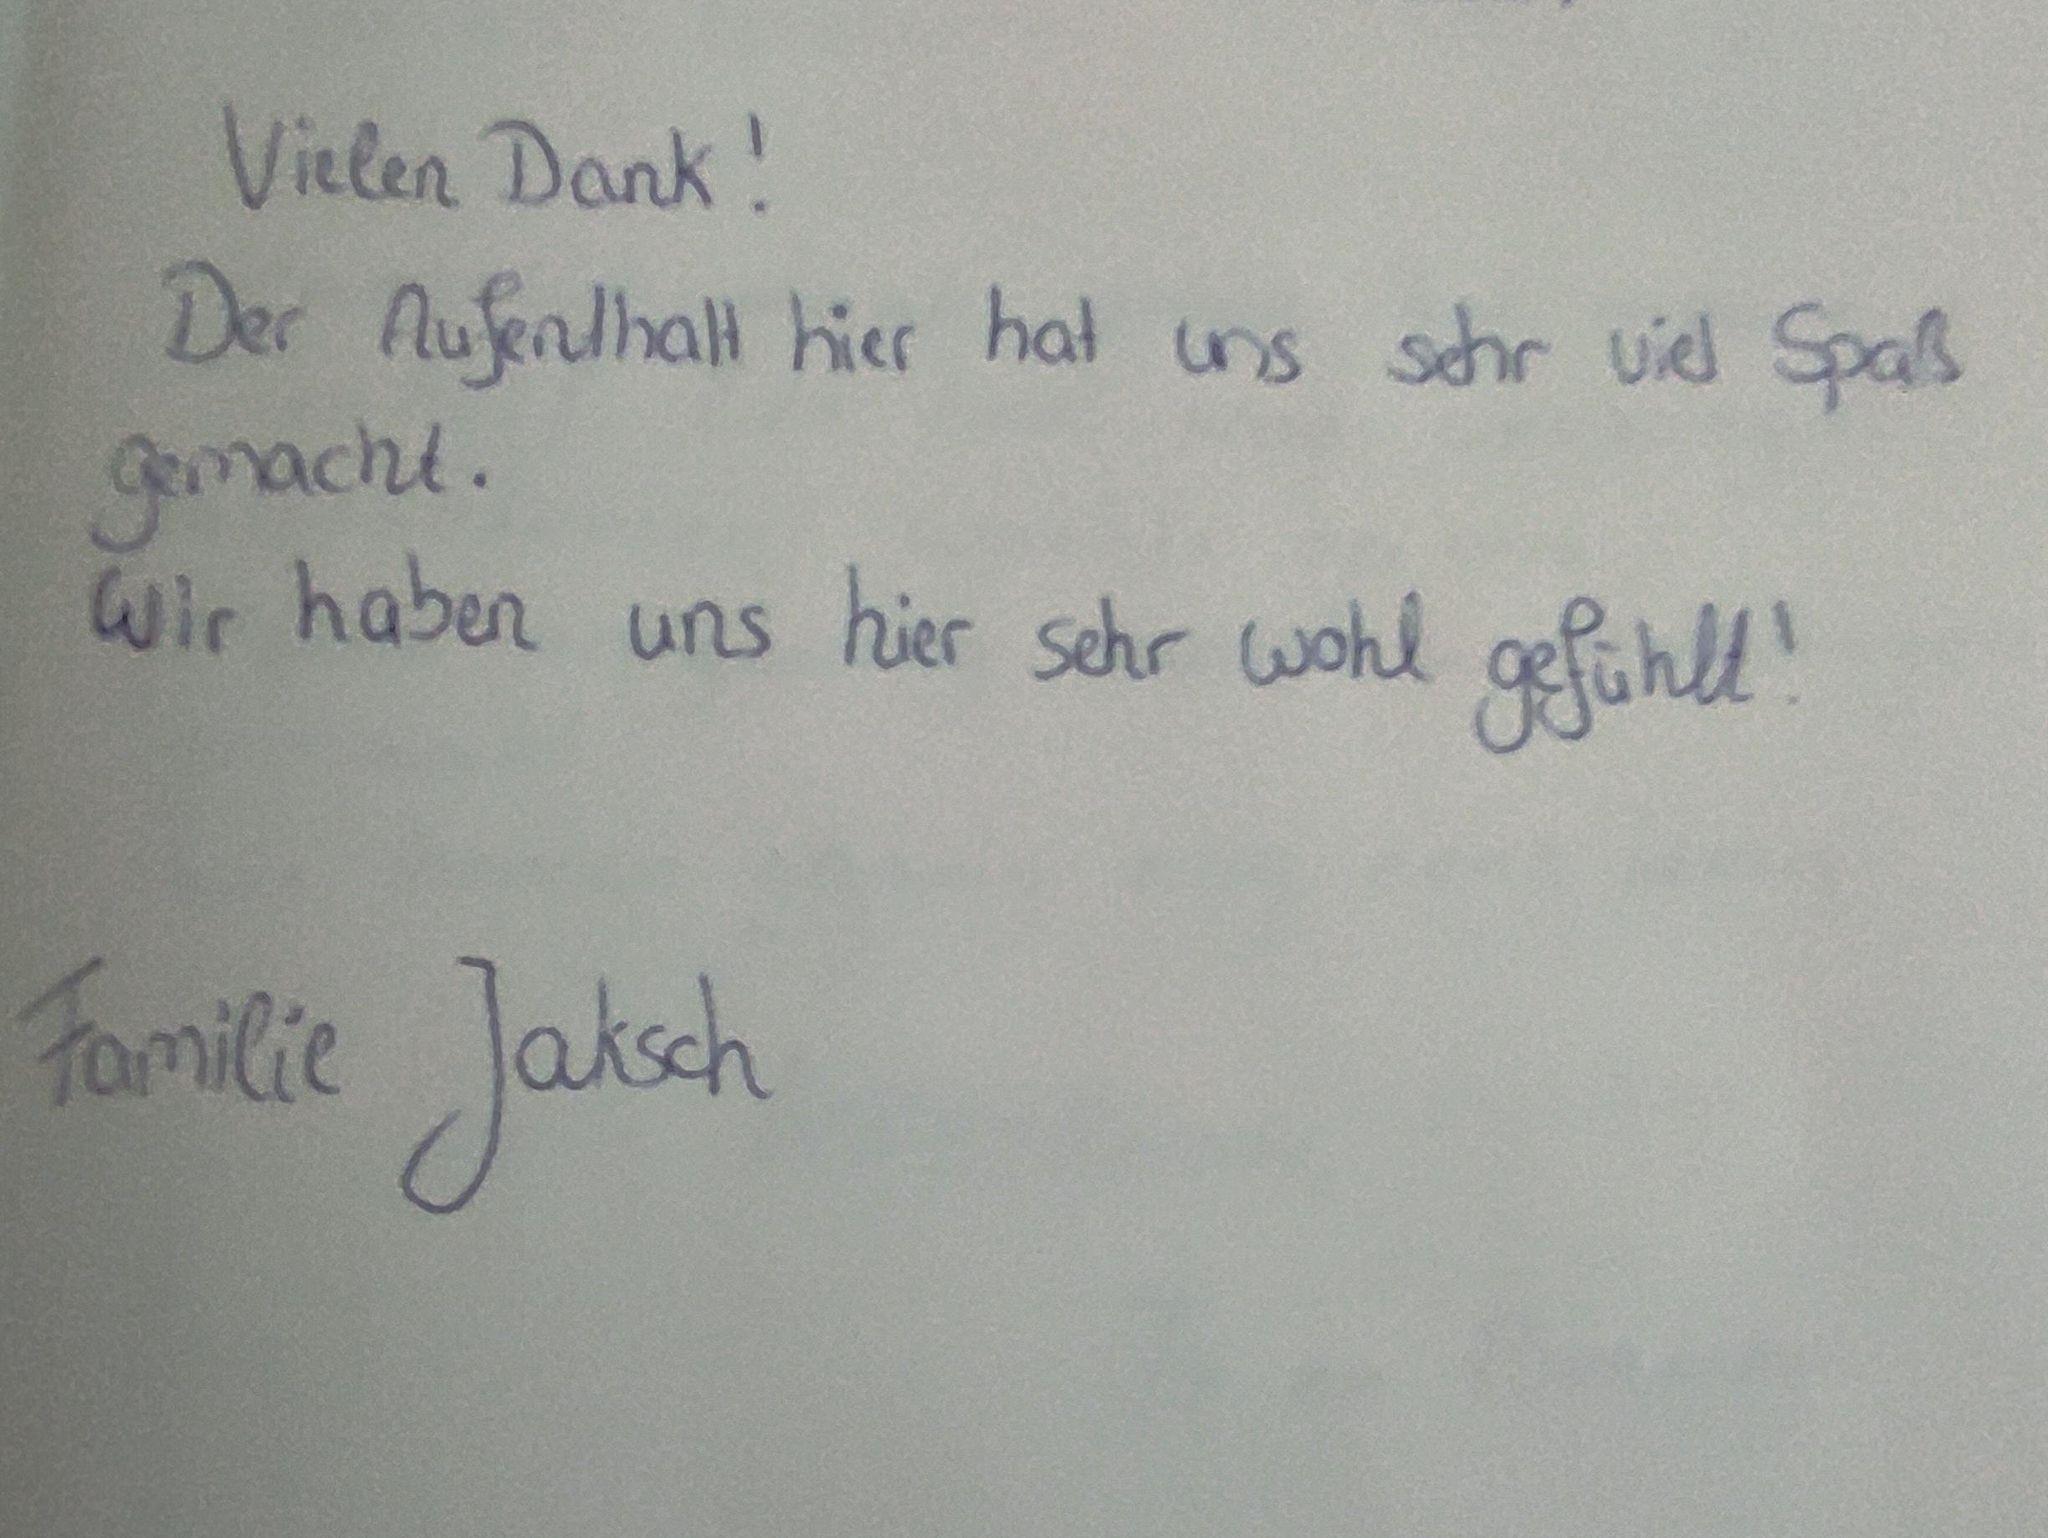 Vielen Dank!
Der Aufenthalt hier hat uns sehr viel Spaß
gemacht.
Wir haben uns hier sehr wohl gefühlt!
Familie Jaksch